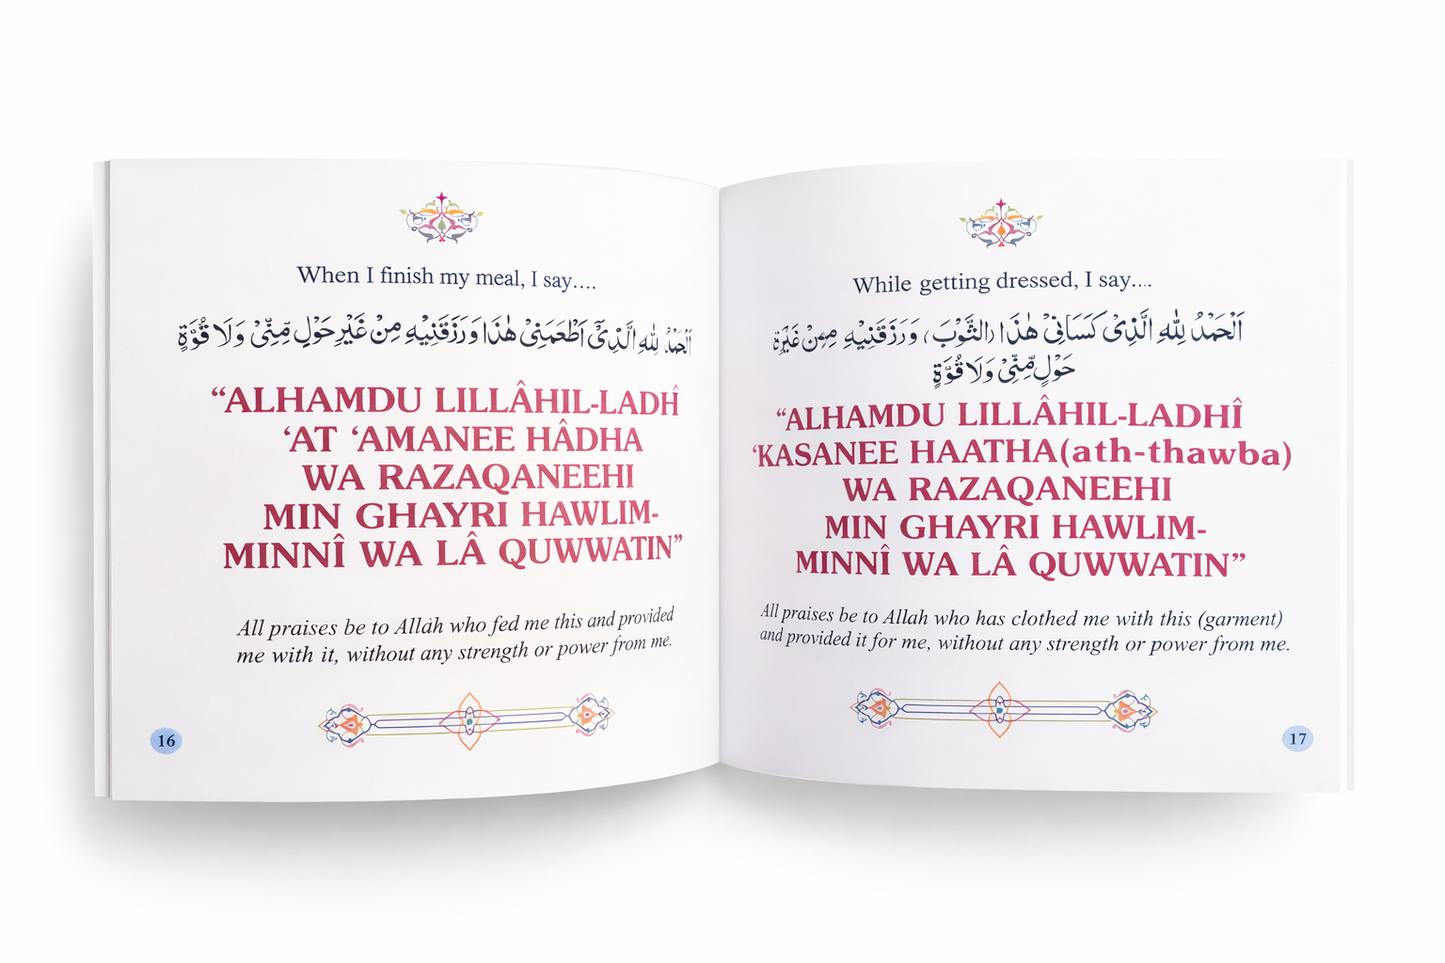 When I finish my meal, I say....
اَلْحَمْدُ لِلّٰهِ الَّذِىْٓ اَطْعَمَنِىْ هٰذَا وَرَزَقَنِيْهِ مِنْ غَيْرِ حَوْلٍ مِّنِّىْ وَلَا قُوَّةٍ
“ALHAMDU LILLÂHIL-LADHÎ
‘AT ‘AMANEE HÂDHA
WA RAZAQANEEHI
MIN GHAYRI HAWLIM-
MINNÎ WA LÂ QUWWATIN”
All praises be to Allah who fed me this and provided
me with it, without any strength or power from me.
16
While getting dressed, I say....
اَلْحَمْدُ لِلّٰهِ الَّذِىْ كَسَانِىْ هٰذَا (الثَّوْبَ) وَرَزَقَنِيْهِ
حَوْلٍ مِّنِّىْ وَلَا قُوَّةٍ
“ALHAMDU LILLÂHIL-LADHÎ
‘KASANEE HAATHA(ath-thawba)
WA RAZAQANEEHI
MIN GHAYRI HAWLIM-
MINNÎ WA LÂ QUWWATIN”
All praises be to Allah who has clothed me with this (garment)
and provided it for me, without any strength or power from me.
17